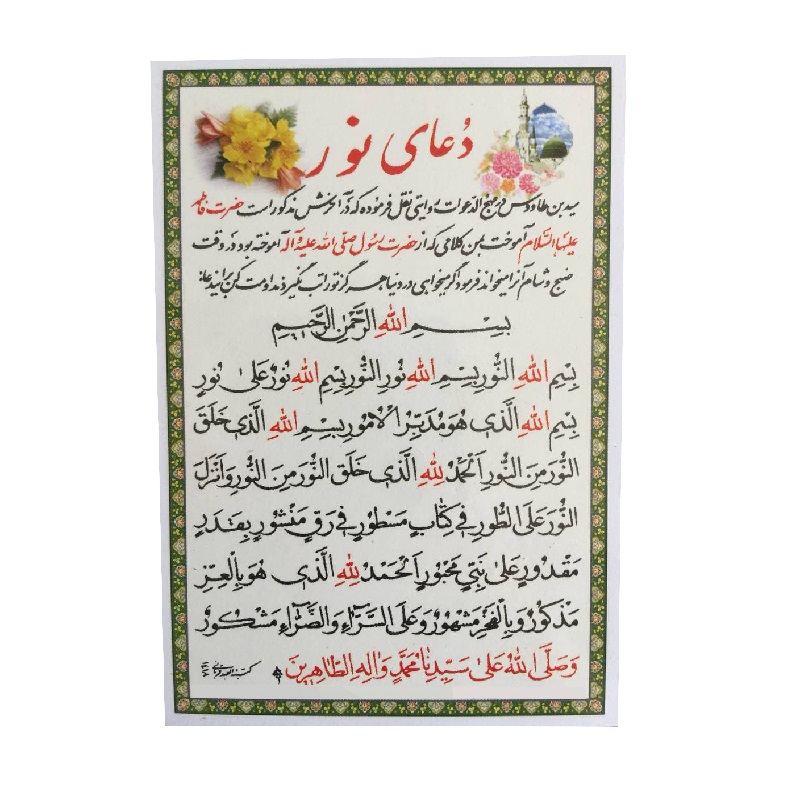 دُعای نور
سید بن طاووس در مهج الدعوات روایتی نقل فرموده که در آخرش مذکور است حضرت فاطمه
علیها السلام آموخت بمن کلامی که از حضرت رسول صلی الله علیه و آله آموخته بود و در وقت
صبح و شام آنرا میخواند فرمود اگر میخواهی در دنیا هرگز تو را تب نگیرد مداومت کن بر آن
بِسْمِ اللهِ الرَّحْمٰنِ الرَّحِیمِ
بِسْمِ اللهِ النُّورِ بِسْمِ اللهِ نُورِ النُّورِ بِسْمِ اللهِ نُورٌ عَلیٰ نُورٍ
بِسْمِ اللهِ الَّذی هُوَ مُدَبِّرُ الْاُمُورِ بِسْمِ اللهِ الَّذی خَلَقَ
النُّورَ مِنَ النُّورِ اَلْحَمْدُ لِلهِ الَّذی خَلَقَ النُّورَ مِنَ النُّورِ وَاَنْزَلَ
النُّورَ عَلَی الطُّورِ فی کِتَابٍ مَسْطُورٍ فی رَقٍّ مَنْشُورٍ بِقَدَرٍ
مَقْدُورٍ عَلیٰ نَبِیٍّ مَحْبُورٍ اَلْحَمْدُ لِلهِ الَّذی هُوَ بِالْعِزِّ
مَذْکُورٌ وَ بِالْفَخْرِ مَشْهُورٌ وَ عَلَی السَّرَّاءِ وَ الضَّرَّاءِ مَشْکُورٌ
وَ صَلَّی اللهُ عَلیٰ سَیِّدِنَا مُحَمَّدٍ وَ الِهِ الطَّاهِرِینَ